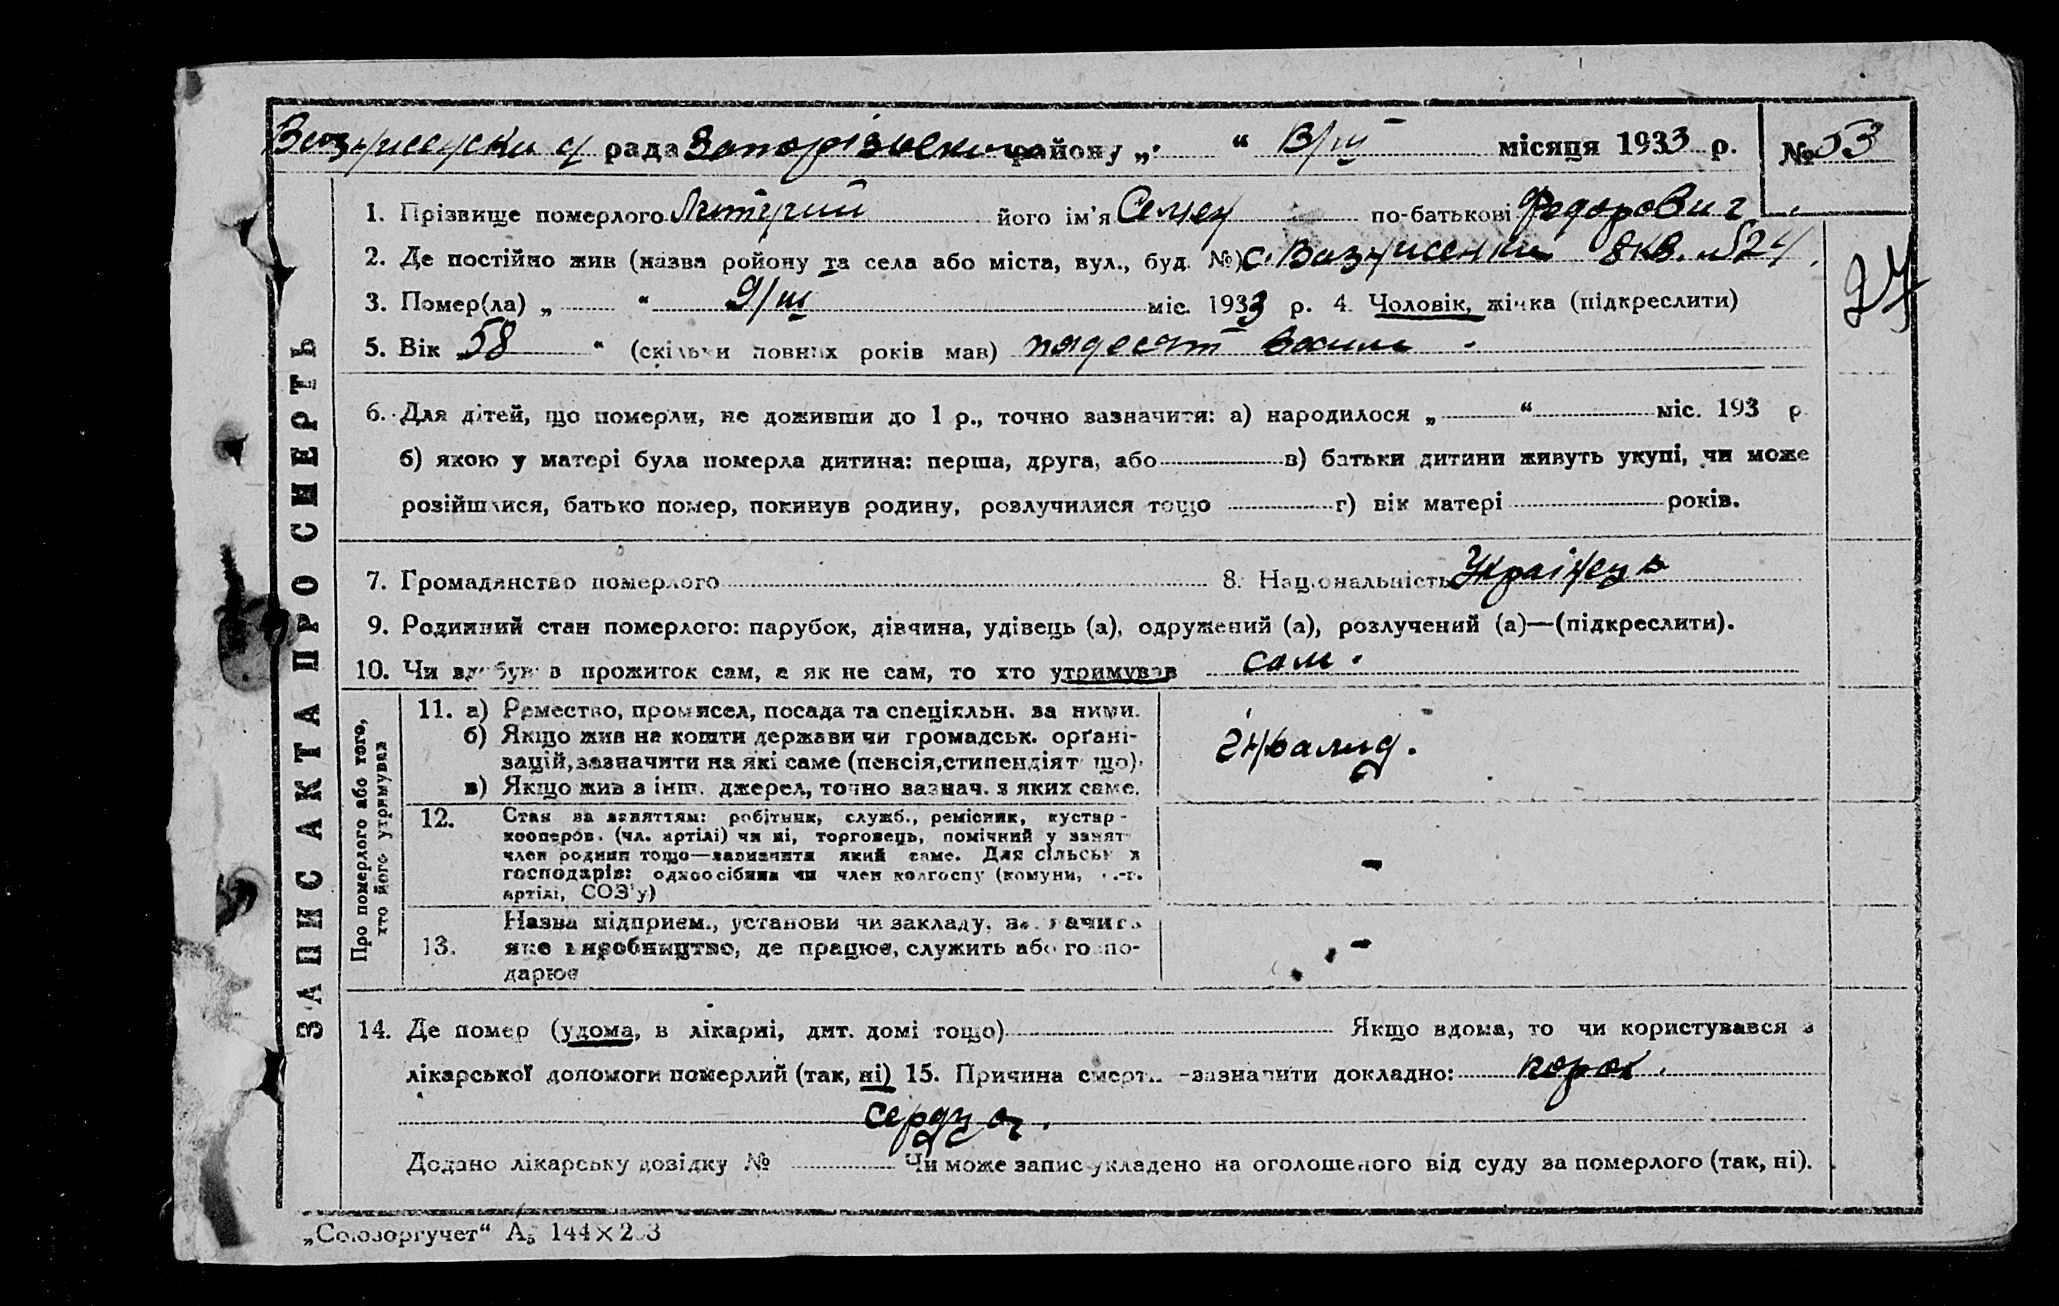 рада Запорізького району „ “ В/ІІІ місяця 1933 р. № 53
1. Прізвище померлого його ім’я Семен по-батькові Федорович
2. Де постійно жив (назва ройону та села або міста, вул., буд. №) с. Вознисенки 8 кв. №24
27
3. Помер(ла) „ “ 9/ІІІ міс. 1933 р. 4. Чоловік, жінка (підкреслити)
5. Вік „ 58 “ (скільки повних років мав) пядесят восим
6. Для дітей, що померли, не доживши до 1 р., точно зазначити: а) народилося „ “ міс. 193 р.
б) якою у матері була померла дитина: перша, друга, або в) батьки дитини живуть укупі, чи може
розійшлися, батько помер, покинув родину, розлучилися тощо г) вік матері років.
7. Громадянство померлого 8. Національність Українець
9. Родинний стан померлого: парубок, дівчина, удівець (а), одружений (а), розлучений (а)—(підкреслити).
10. Чи здобував прожиток сам, а як не сам, то хто утримував сам.
ЗАПИС АКТА ПРО СМЕРТЬ
Про померлого або того, хто його утримував
11. а) Ремество, промисел, посада та спеціяльн. за ними.
б) Якщо жив на кошти держави чи громадськ. орґані-
зацій, зазначити на які саме (пенсія, стипендія т що).
в) Якщо жив з інш. джерел, точно зазнач. з яких саме.
інвалид.
12. Стан за заняттям: робітник, служб., ремісник, кустар-
кооперов. (чл. артілі) чи ні, торговець, помічний у занят
член родини тощо—зазначити який саме. Для сільськ х
господарів: одноосібник чи член колгоспу (комуни, с.-г.
артілі, СОЗ’у)
-
13. Назва підприєм., установи чи закладу, зазначить
яке виробництво, де працює, служить або госпо-
дарює
-
14. Де помер (удома, в лікарні, дит. домі тощо) Якщо вдома, то чи користувався з
лікарської допомоги померлий (так, ні) 15. Причина смерти—зазначити докладно: порок
сердца.
Додано лікарську довідку № Чи може запис укладено на оголошеного від суду за померлого (так, ні).
„Союзоргучет“ А5 144×203